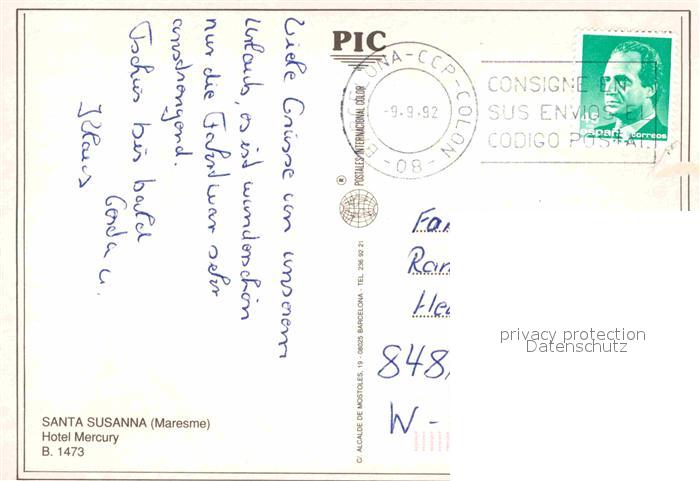 Viele Grüsse von unserem
Urlaub, es ist wunderschön
nur die Fahrt war sehr
anstrengend.
Tschüs bis bald
Gerda u.
Klaus
SANTA SUSANNA (Maresme)
Hotel Mercury
B. 1473
PIC
POSTALES INTERNACIONAL COLOR
®
C/ ALCALDE DE MOSTOLES, 19 - 08025 BARCELONA - TEL. 236 92 21
LONA-CCP-COLON
-9.9.92
B -08-
CONSIGNE EN
SUS ENVIOS EL
CODIGO POSTAL
españa correos
Fa
Ra
He
848
W-
privacy protection
Datenschutz